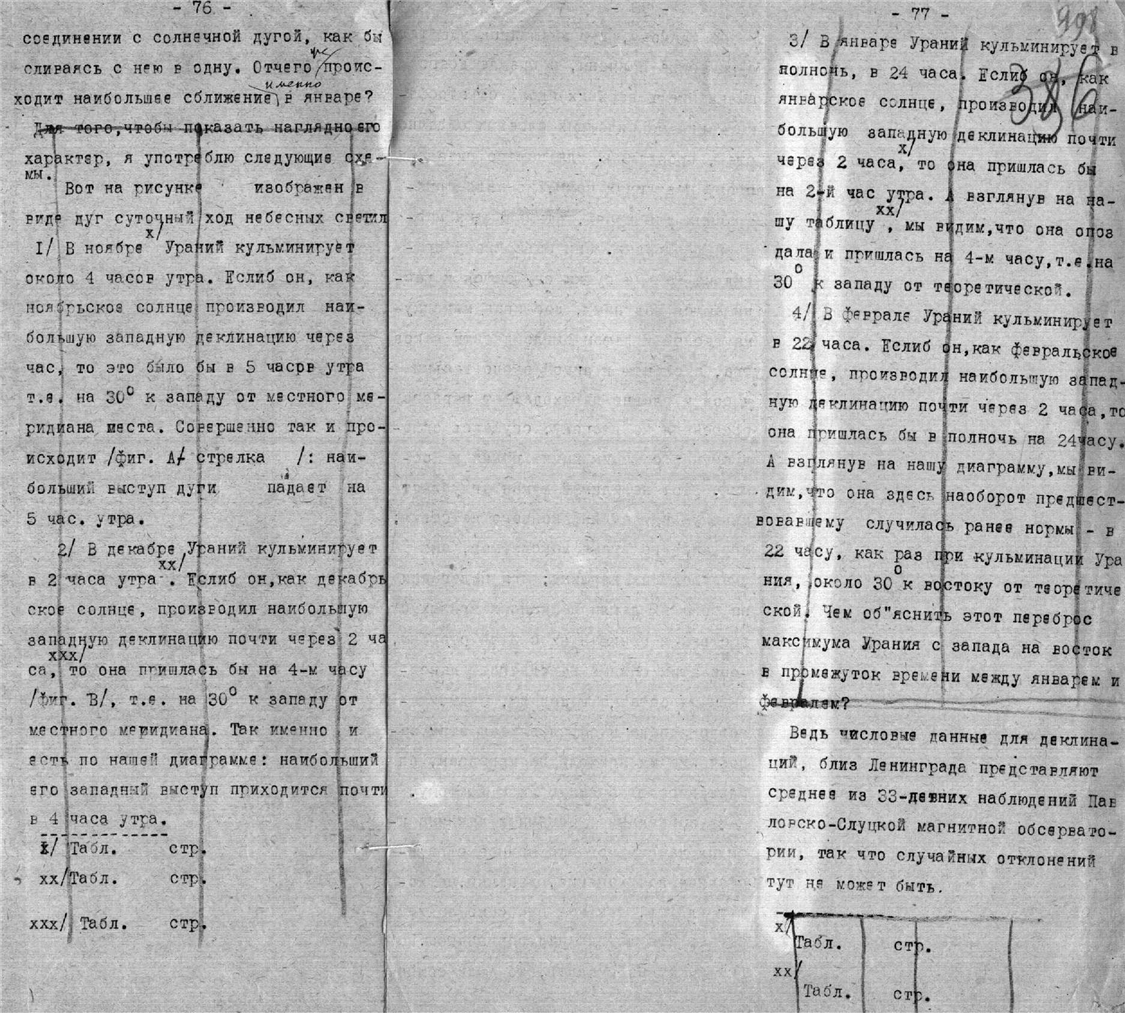 - 76 -
соединении с солнечной дугой, как бы
сливаясь с нею в одну. Отчего же проис-
именно
ходит наибольшее сближение в январе?
Для того,чтобы показать наглядно его
характер, я употреблю следующие схе-
мы.
Вот на рисунке изображен в
виде дуг суточный ход небесных светил
1/ В ноябре х/ Ураний кульминирует
около 4 часов утра. Еслиб он, как
ноябрьское солнце производил наи-
большую западную деклинацию через
час, то это было бы в 5 часрв утра
т.е. на 30° к западу от местного ме-
ридиана места. Совершенно так и про-
исходит /фиг. А/ стрелка /: наи-
больший выступ дуги падает на
5 час. утра.
2/ В декабре Ураний кульминирует
в 2 часа утра хх/. Еслиб он,как декабрь
ское солнце, производил наибольшую
западную деклинацию почти через 2 ча
са, ххх/ то она пришлась бы на 4-м часу
/фиг. В/, т.е. на 30° к западу от
местного меридиана. Так именно и
есть по нашей диаграмме: наибольший
его западный выступ приходится почти
в 4 часа утра.
х/ Табл. стр.
хх/Табл. стр.
ххх/ Табл. стр.
- 77 -
386
3/ В январе Ураний кульминирует в
полночь, в 24 часа. Еслиб он, как
январское солнце, производил наи-
большую западную деклинацию почти
через 2 часа, х/ то она пришлась бы
на 2-й час утра. А взглянув на на-
шу таблицу хх/, мы видим,что она опоз
дала и пришлась на 4-м часу,т.е.на
30° к западу от теоретической.
4/ В феврале Ураний кульминирует
в 22 часа. Еслиб он,как февральское
солнце, производил наибольшую запад-
ную деклинацию почти через 2 часа,то
она пришлась бы в полночь на 24часу.
А взглянув на нашу диаграмму,мы ви-
дим,что она здесь наоборот предшест-
вовавшему случилась ранее нормы - в
22 часу, как раз при кульминации Ура
ния, около 30° к востоку от теоретиче
ской. Чем об"яснить этот переброс
максимума Урания с запада на восток
в промежуток времени между январем и
февралем?
Ведь числовые данные для деклина-
ций, близ Ленинграда представляют
среднее из 33-детних наблюдений Пав
ловско-Слуцкой магнитной обсервато-
рии, так что случайных отклонений
тут не может быть.
х/
Табл. стр.
хх/
Табл. стр.